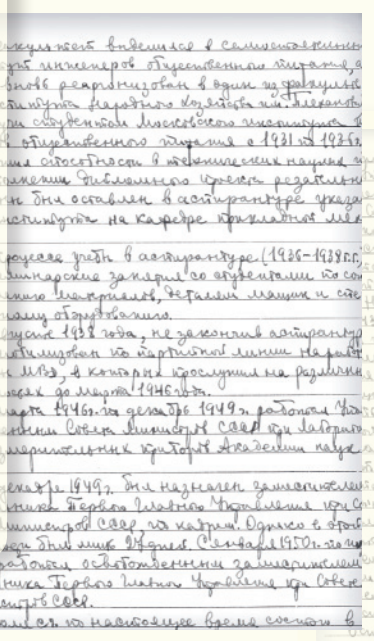 акультет выделился в самостоятельный
тут инженеров общественного питания, а
вновь реорганизован в один из факульте
ститута народного хозяйства им. Плеханова
учи студентом Московского института
в общественного питания с 1931 по 1936г.
способности в технических науках и
полнении дипломного проекта
он был оставлен в аспирантуре указан
нститута на кафедре прикладной мех
процессе учебы в аспирантуре (1936-1938г.г.)
еминарские занятия со студентами по соп
лению материалов, деталям машин и спе
ному оборудованию.
августе 1938 года, не закончив аспирантур
обилизован по партийной линии на работ
н МВД, в которых прослужил на различны
остях до марта 1946 года.
марта 1946г. по декабрь 1949г. работал Упол
енным Совета Министров СССР при Лаборато
змерительных приборов Академии наук
декабре 1949г. был назначен заместителем
ьника Первого Главного Управления при Со
Министров СССР, по кадрам. Однако в этой
был лишь 27 дней. С января 1950г. по
работал освобожденным заместителем
ника Первого Главного Управления при Совете
истров СССР.
по настоящее время состоит в